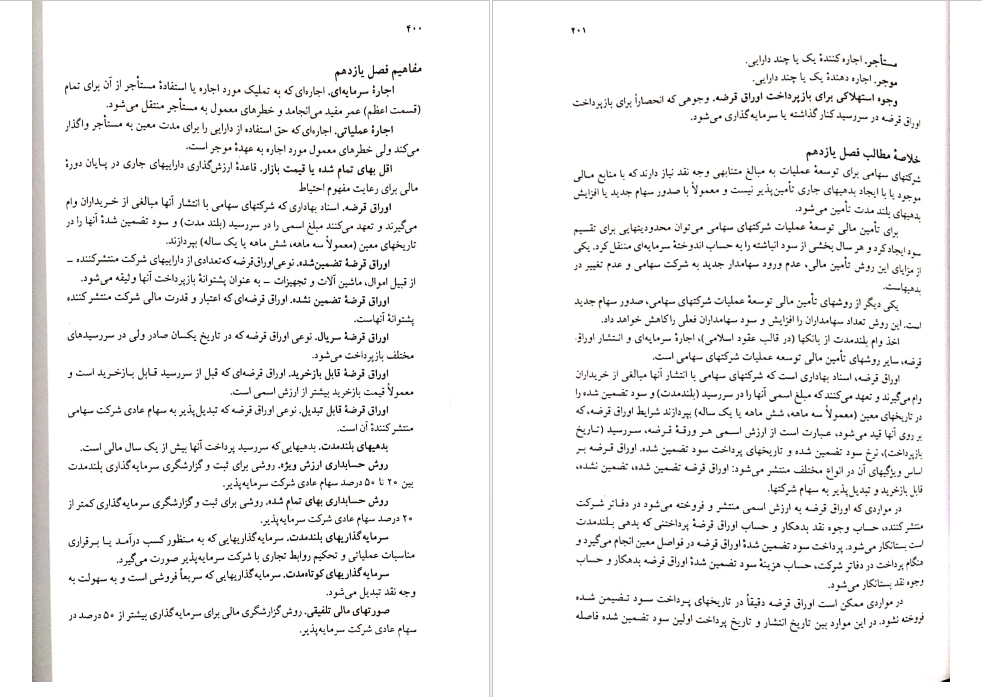 ۴۰۰
مفاهیم فصل یازدهم
اجارهٔ سرمایه‌ای. اجاره‌ای که به تملیک مورد اجاره یا استفادهٔ مستأجر از آن برای تمام
(قسمت اعظم) عمر مفید می‌انجامد و خطرهای معمول به مستأجر منتقل می‌شود.
اجارهٔ عملیاتی. اجاره‌ای که حق استفاده از دارایی را برای مدت معین به مستأجر واگذار
می‌کند ولی خطرهای معمول مورد اجاره به عهدهٔ موجر است.
اقل بهای تمام شده یا قیمت بازار. قاعدهٔ ارزش‌گذاری داراییهای جاری در پایان دورهٔ
مالی برای رعایت مفهوم احتیاط
اوراق قرضه. اسناد بهاداری که شرکتهای سهامی با انتشار آنها مبالغی از خریداران وام
می‌گیرند و تعهد می‌کنند مبلغ اسمی را در سررسید (بلند مدت) و سود تضمین شدهٔ آنها را در
تاریخهای معین (معمولاً سه ماهه، شش ماهه یا یک ساله) بپردازند.
اوراق قرضهٔ تضمین‌شده. نوعی اوراق قرضه که تعدادی از داراییهای شرکت منتشرکننده –
از قبیل اموال، ماشین آلات و تجهیزات – به عنوان پشتوانهٔ بازپرداخت آنها وثیقه می‌شود.
اوراق قرضهٔ تضمین نشده. اوراق قرضه‌ای که اعتبار و قدرت مالی شرکت منتشر کننده
پشتوانهٔ آنهاست.
اوراق قرضهٔ سریال. نوعی اوراق قرضه که در تاریخ یکسان صادر ولی در سررسیدهای
مختلف بازپرداخت می‌شود.
اوراق قرضهٔ قابل بازخرید. اوراق قرضه‌ای که قبل از سررسید قابل بازخرید است و
معمولاً قیمت بازخرید بیشتر از ارزش اسمی است.
اوراق قرضهٔ قابل تبدیل. نوعی اوراق قرضه که تبدیل‌پذیر به سهام عادی شرکت سهامی
منتشر کنندهٔ آن است.
بدهیهای بلندمدت. بدهیهایی که سررسید پرداخت آنها بیش از یک سال مالی است.
روش حسابداری ارزش ویژه. روشی برای ثبت و گزارشگری سرمایه‌گذاری بلندمدت
بین ۲۰ تا ۵۰ درصد سهام عادی شرکت سرمایه‌پذیر.
روش حسابداری بهای تمام شده. روشی برای ثبت و گزارشگری سرمایه‌گذاری کمتر از
۲۰ درصد سهام عادی شرکت سرمایه‌پذیر.
سرمایه‌گذاریهای بلندمدت. سرمایه‌گذاریهایی که به منظور کسب درآمد یا برقراری
مناسبات عملیاتی و تحکیم روابط تجاری با شرکت سرمایه‌پذیر صورت می‌گیرد.
سرمایه‌گذاریهای کوتاه‌مدت. سرمایه‌گذاریهایی که سریعاً فروشی است و به سهولت به
وجه نقد تبدیل می‌شود.
صورتهای مالی تلفیقی. روش گزارشگری مالی برای سرمایه‌گذاری بیشتر از ۵۰ درصد در
سهام عادی شرکت سرمایه‌پذیر.
۴۰۱
مستأجر. اجاره کنندهٔ یک یا چند دارایی.
موجر. اجاره دهندهٔ یک یا چند دارایی.
وجوه استهلاکی برای بازپرداخت اوراق قرضه. وجوهی که انحصاراً برای بازپرداخت
اوراق قرضه در سررسید کنار گذاشته یا سرمایه‌گذاری می‌شود.
خلاصهٔ مطالب فصل یازدهم
شرکتهای سهامی برای توسعهٔ عملیات به مبالغ متنابهی وجه نقد نیاز دارند که با منابع مالی
موجود یا با ایجاد بدهیهای جاری تأمین‌پذیر نیست و معمولاً با صدور سهام جدید یا افزایش
بدهیهای بلند مدت تأمین می‌شود.
برای تأمین مالی توسعهٔ عملیات شرکتهای سهامی می‌توان محدودیتهایی برای تقسیم
سود ایجاد کرد و هر سال بخشی از سود انباشته را به حساب اندوختهٔ سرمایه‌ای منتقل کرد. یکی
از مزایای این روش تأمین مالی، عدم ورود سهامدار جدید به شرکت سهامی و عدم تغییر در
بدهیهاست.
یکی دیگر از روشهای تأمین مالی توسعهٔ عملیات شرکتهای سهامی، صدور سهام جدید
است. این روش تعداد سهامداران را افزایش و سود سهامداران فعلی را کاهش خواهد داد.
اخذ وام بلندمدت از بانکها (در قالب عقود اسلامی)، اجارهٔ سرمایه‌ای و انتشار اوراق
قرضه، سایر روشهای تأمین مالی توسعه عملیات شرکتهای سهامی است.
اوراق قرضه، اسناد بهاداری است که شرکتهای سهامی با انتشار آنها مبالغی از خریداران
وام می‌گیرند و تعهد می‌کنند که مبلغ اسمی آنها را در سررسید (بلندمدت) و سود تضمین شده را
در تاریخهای معین (معمولاً سه ماهه، شش ماهه یا یک ساله) بپردازند شرایط اوراق قرضه، که
بر روی آنها قید می‌شود، عبارت است از ارزش اسمی هر ورقهٔ قرضه، سررسید (تاریخ
بازپرداخت)، نرخ سود تضمین شده و تاریخهای پرداخت سود تضمین شده. اوراق قرضه بر
اساس ویژگیهای آن در انواع مختلف منتشر می‌شود: اوراق قرضه تضمین شده، تضمین نشده،
قابل بازخرید و تبدیل‌پذیر به سهام شرکتها.
در مواردی که اوراق قرضه به ارزش اسمی منتشر و فروخته می‌شود در دفاتر شرکت
منتشر کننده، حساب وجوه نقد بدهکار و حساب اوراق قرضهٔ پرداختنی که بدهی بلندمدت
است بستانکار می‌شود. پرداخت سود تضمین شدهٔ اوراق قرضه در فواصل معین انجام می‌گیرد و
هنگام پرداخت در دفاتر شرکت، حساب هزینهٔ سود تضمین شدهٔ اوراق قرضه بدهکار و حساب
وجوه نقد بستانکار می‌شود.
در مواردی ممکن است اوراق قرضه دقیقاً در تاریخهای پرداخت سود تضیمن شده
فروخته نشود. در این موارد بین تاریخ انتشار و تاریخ پرداخت اولین سود تضمین شده فاصله